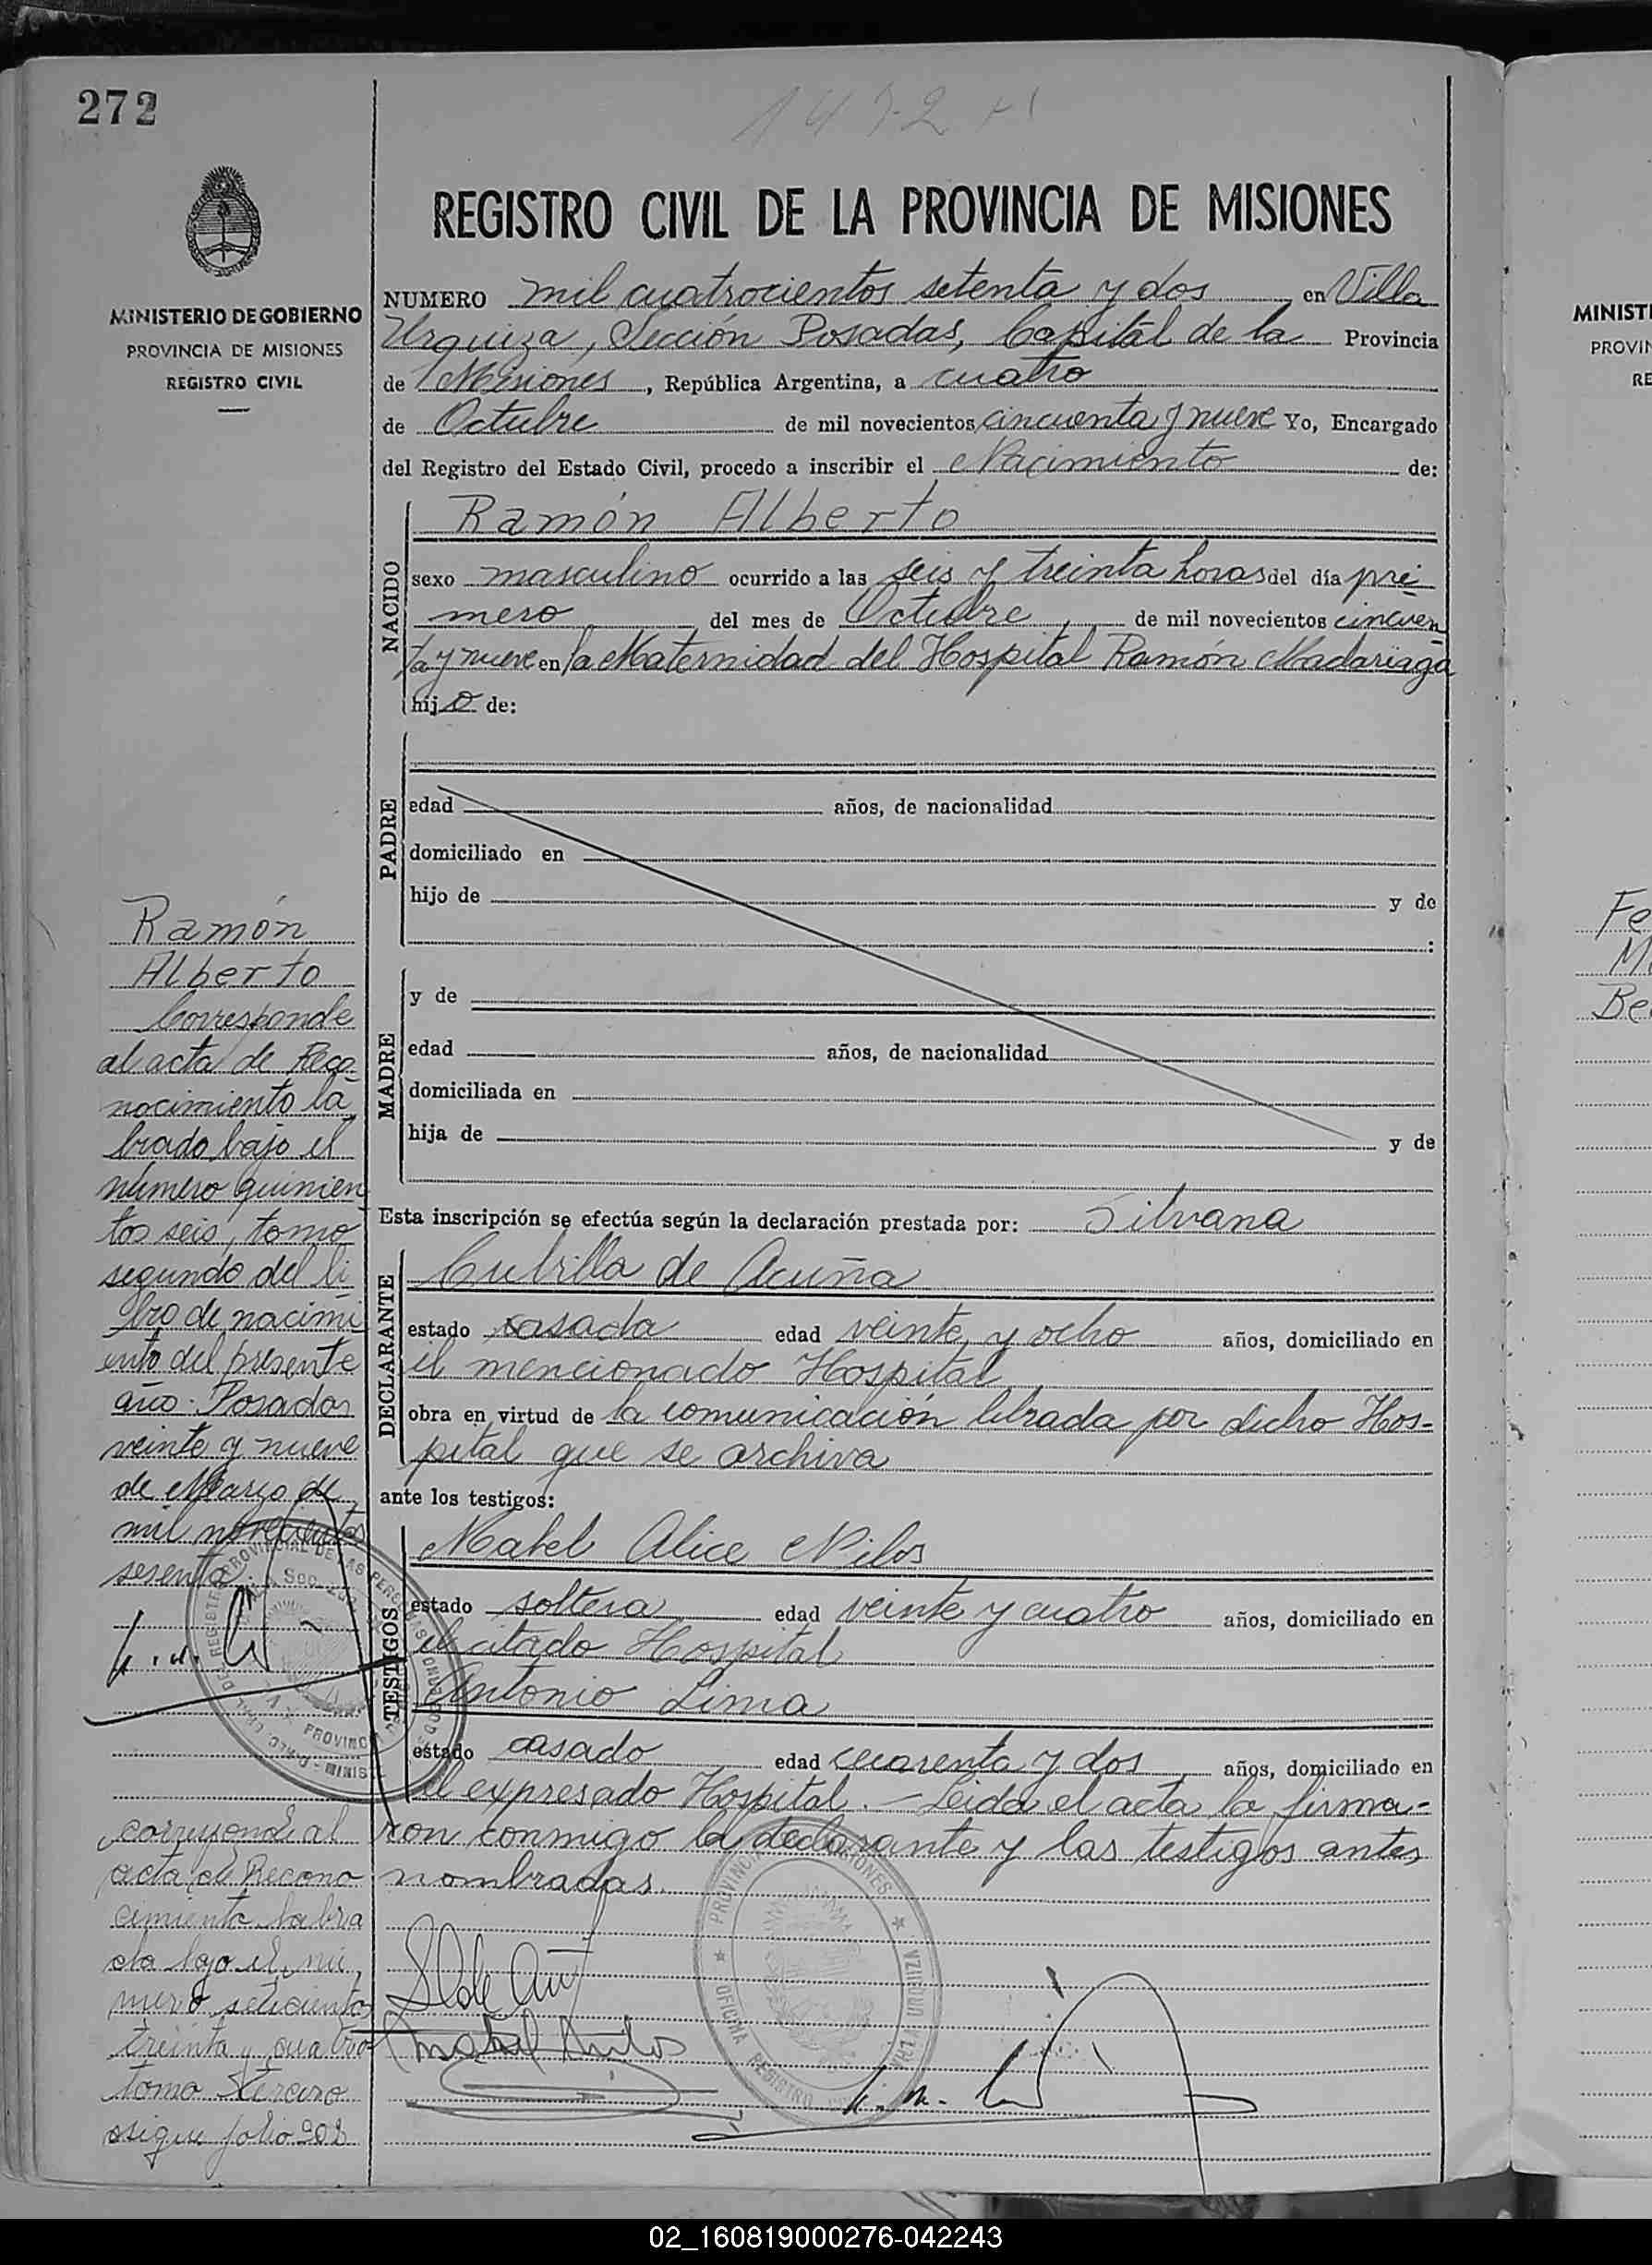 272
1472
MINISTERIO DE GOBIERNO
PROVINCIA DE MISIONES
REGISTRO CIVIL
REGISTRO CIVIL DE LA PROVINCIA DE MISIONES
NUMERO mil cuatrocientos setenta y dos en Villa
Urquiza, Sección Posadas, Capital de la Provincia
de Misiones, República Argentina, a cuatro
de Octubre de mil novecientos cincuenta y nueve Yo, Encargado
del Registro del Estado Civil, procedo a inscribir el Nacimiento de:
NACIDO
Ramón Alberto
sexo masculino ocurrido a las seis y treinta horas del día pri
mero del mes de Octubre, de mil novecientos cincuen
ta y nueve en la Maternidad del Hospital Ramón Madariaga
hijo de:
PADRE
edad años, de nacionalidad
domiciliado en
hijo de y de
:
MADRE
y de
edad años, de nacionalidad
domiciliada en
hija de y de
Esta inscripción se efectúa según la declaración prestada por: Silvana
DECLARANTE
Cubilla de Acuña
estado casada edad veinte y ocho años, domiciliado en
el mencionado Hospital
obra en virtud de la comunicación librada por dicho Hos-
pital que se archiva
ante los testigos:
TESTIGOS
Mabel Alice Nilos
estado soltera edad veinte y cuatro años, domiciliado en
el citado Hospital
Antonio Lima
estado casado edad cuarenta y dos años, domiciliado en
el expresado Hospital. - Leida el acta la firma-
ron conmigo la declarante y los testigos antes
nombradas.
S C de Acuñ
Mabel Nilos
PROVINCIA MISIONES
OFICINA REGISTRO VILLA URQUIZA
Ramón
Alberto
Corresponde
al acta de Reco
nocimiento la
brado bajo el
número quinien
tos seis, tomo
segundo del li
bro de nacimi
ento del presente
año. Posadas
veinte y nueve
de Marzo de
mil novecientos
sesenta.
corresponde al
acta de Recono
cimiento labra
da bajo el nú
mero setecientos
treinta y cuatro
tomo tercero
sigue folio 902
MINIST
PROVIN
RE
Fe
M
Be
02_160819000276-042243